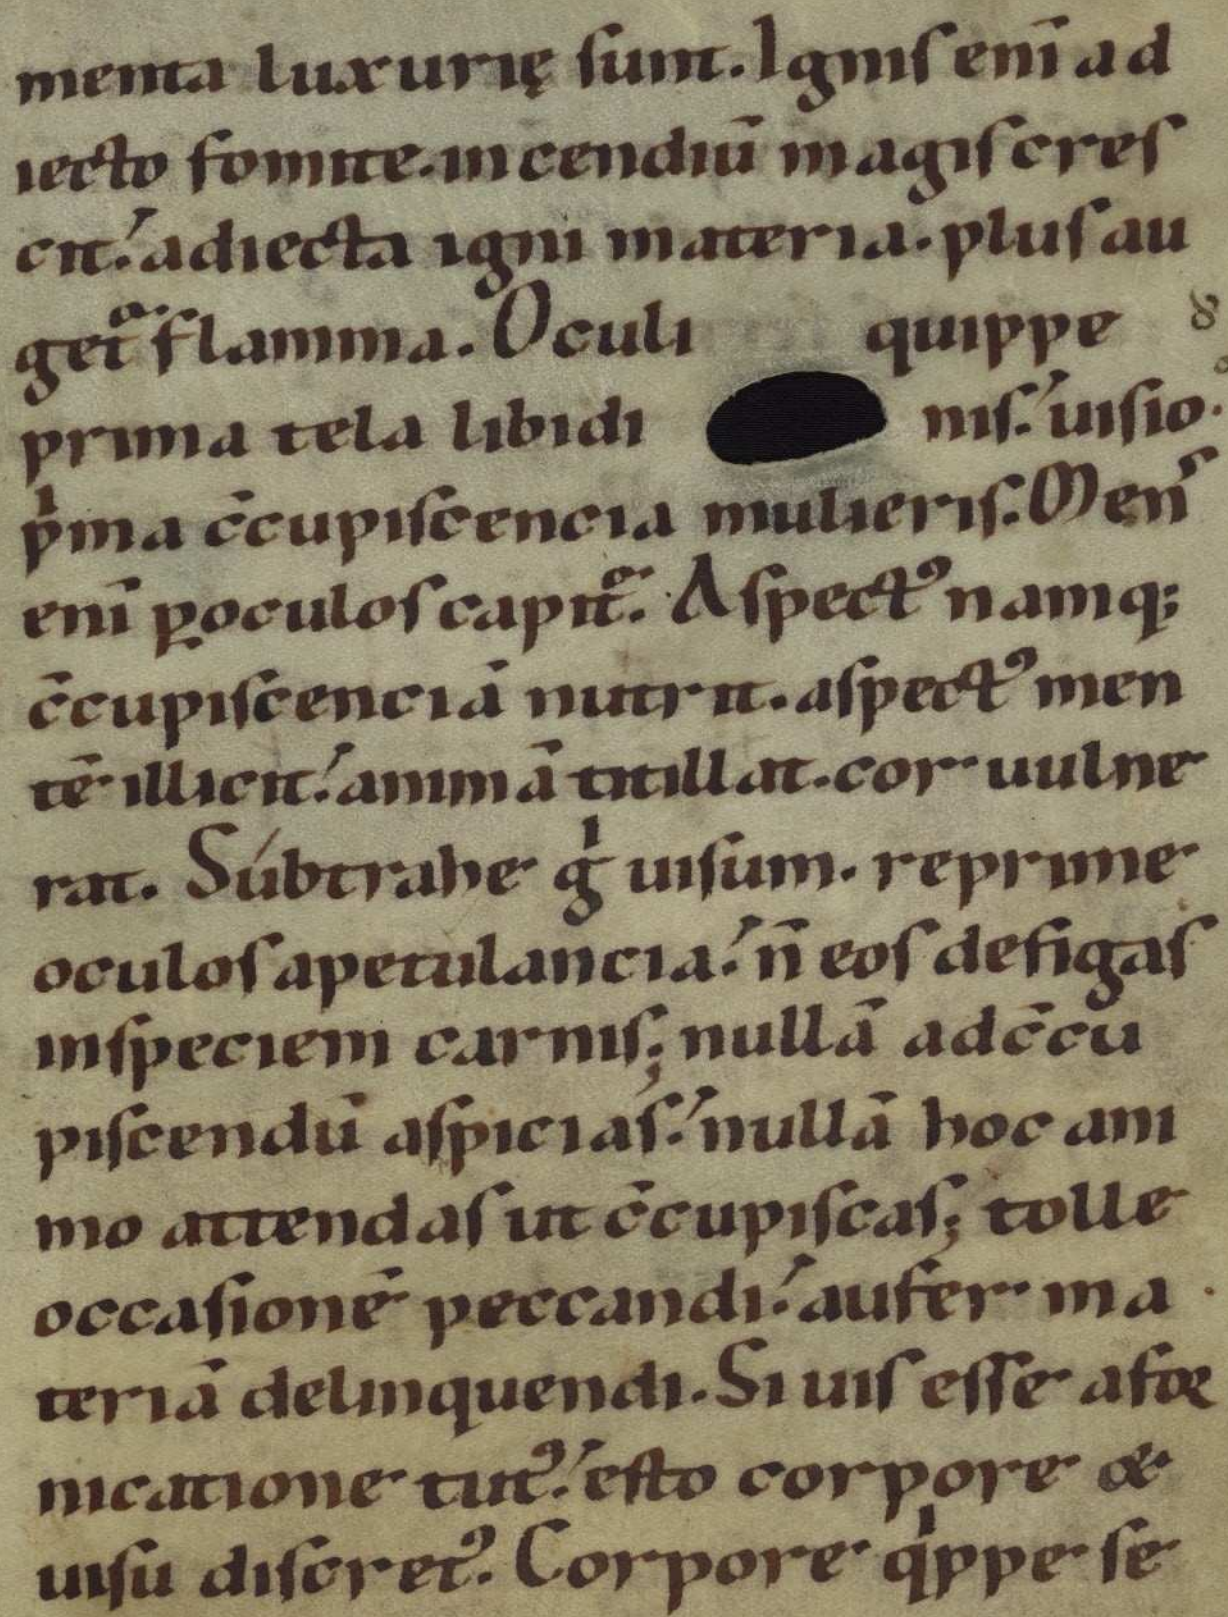 menta luxurię sunt. Ignis enī ad
iecto fomite. incendiū magis cres
cit. adiecta igni materia. plus au
get̄ flamma. Oculi quippe
prima tela libidi nis. uisio.
pͥma c̄cupiscencia mulieris. Mens
enī ꝑ oculos capit᷑. Aspectꝰ namq;
c̄cupiscenciā nutrit. aspectꝰ men
tē illicit. animā titillat. cor uulne
rat. Subtrahe gͥ uisum. reprime
oculos a petulancia. n̄ eos defigas
in speciem carnis; nullā ad c̄cu
piscendū aspicias. nullā hoc ani
mo attendas ut c̄cupiscas; tolle
occasionē peccandi. aufer ma
teriā delinquendi. Si uis esse a for
nicatione tutꝰ. esto corpore &
uisu discretꝰ. Corpore qͥppe se